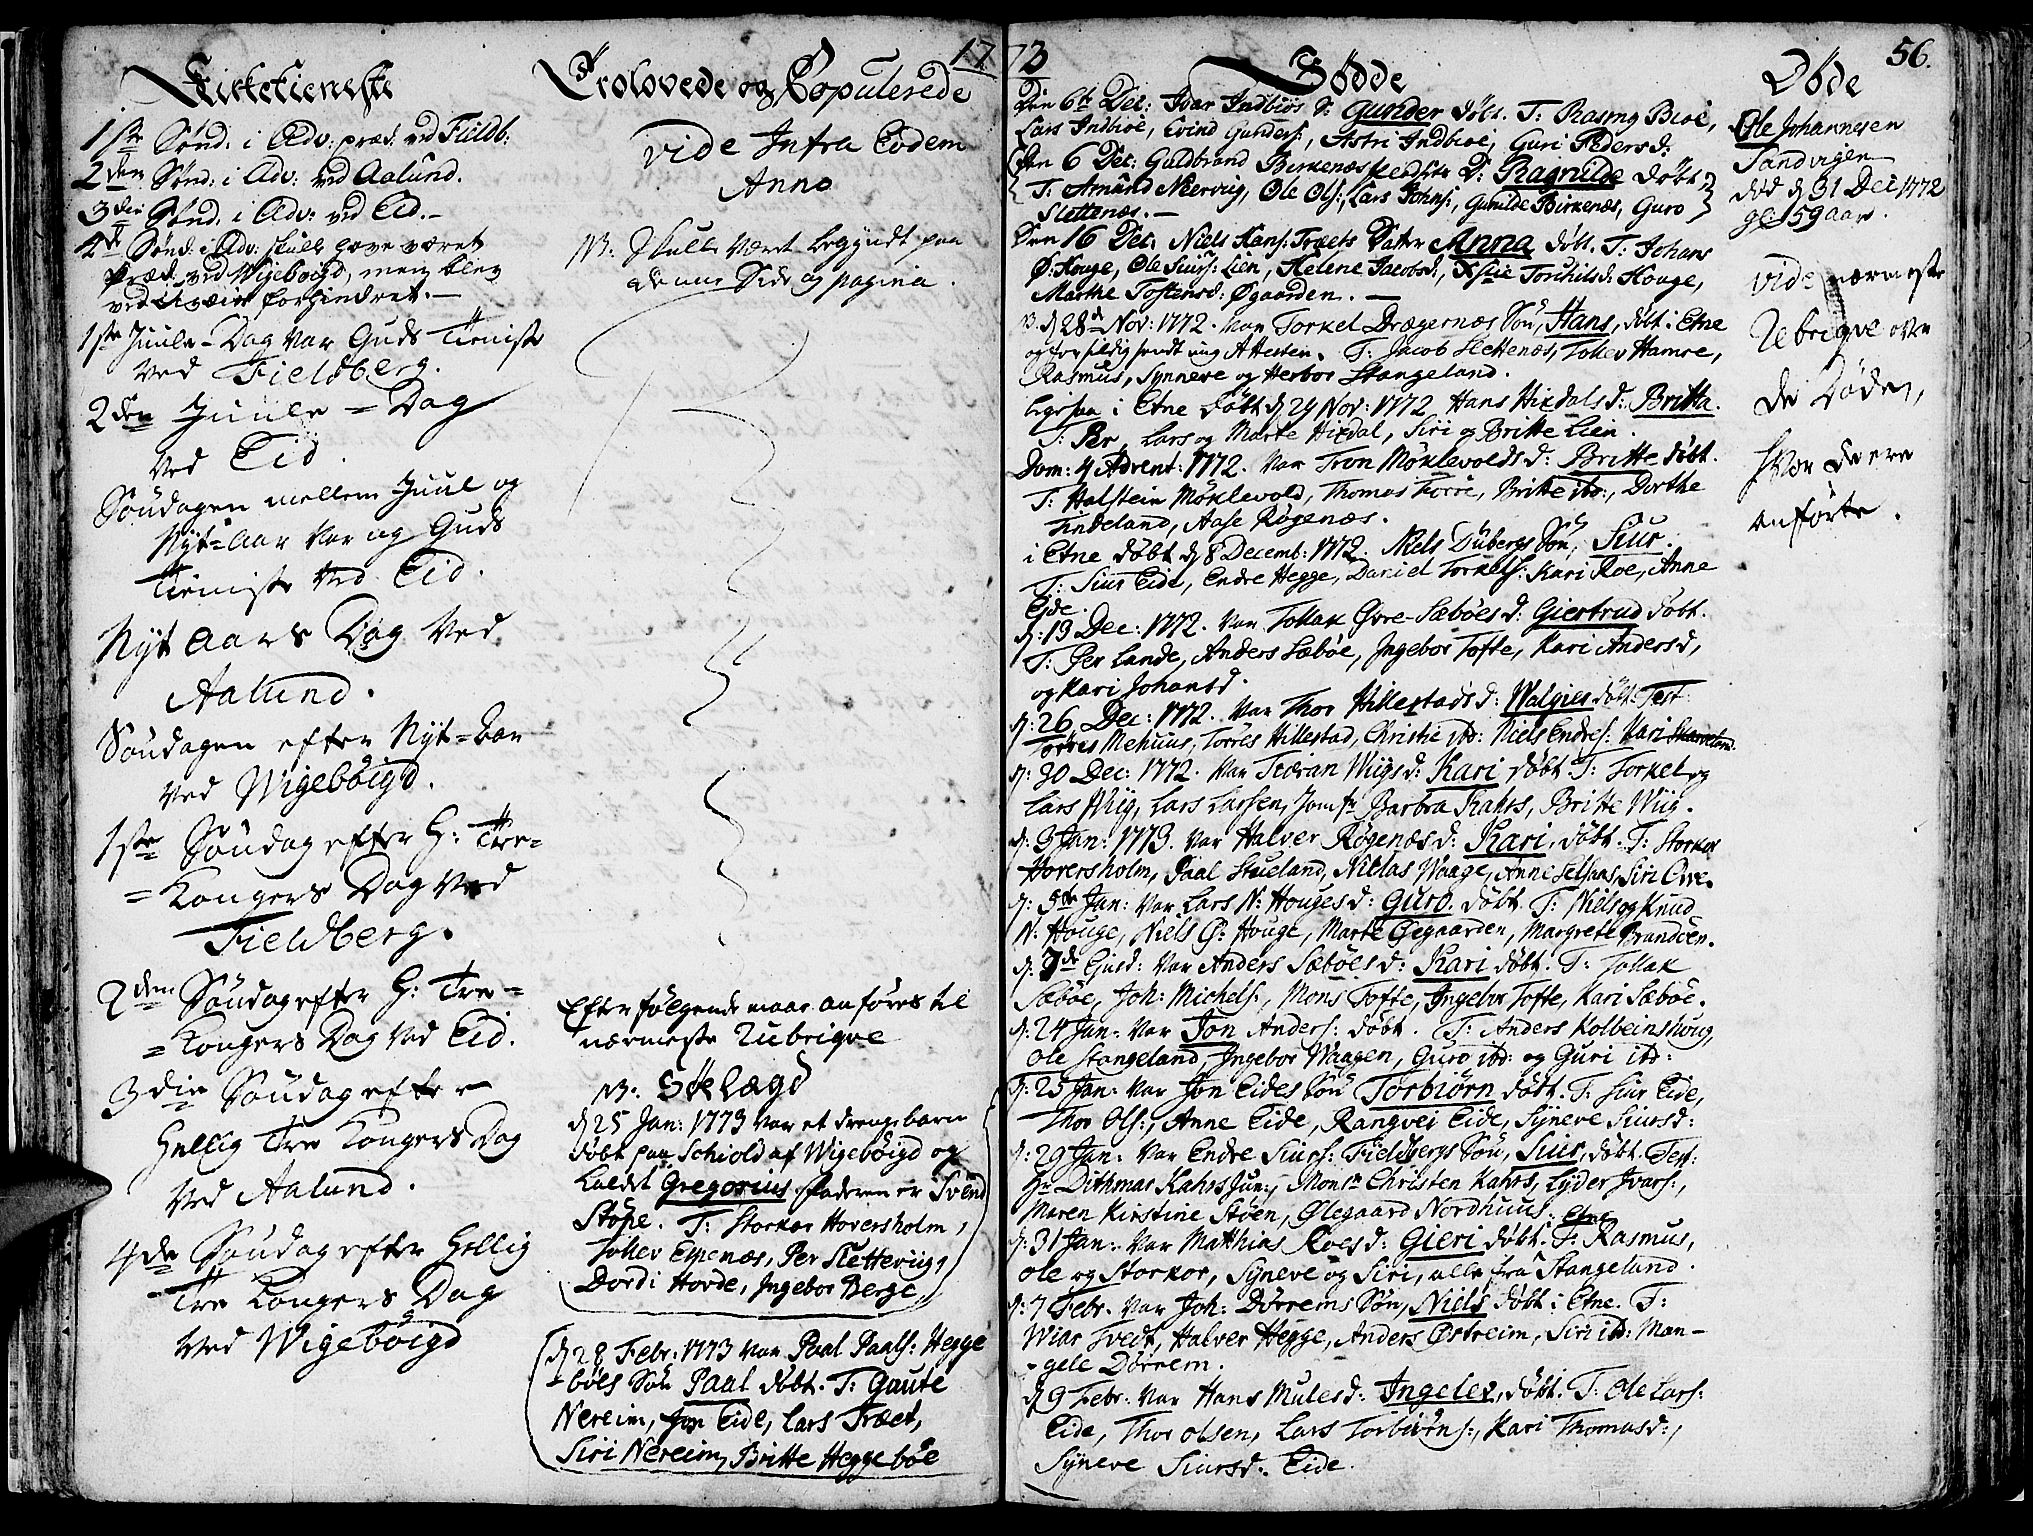 1773
56.
Kirketieneste
1ste Sønd: i Adv: præd. ved Fieldb:
2den Sønd: i Adv: ved Aalund.
3die Sønd. i Adv: ved Eid.
4de Sønd: i Adv: skulle have været
præd. ved Wigebøigd, men blev
ved forhindret.
1ste Juule-Dag var Guds Tieniste
ved Fieldberg.
2den Juule=Dag
ved Eid.
Søndagen mellem Juul og
Nyt=Aar var og Guds
Tieniste ved Eid.
Nyt aars Dag ved
Aalund.
Søndagen efter Nyt=aar
ved Wigebøigd.
1ste Søndag efter H: Tre=
=Kongers Dag ved
Fieldberg.
2den Søndag efter H: Tre=
=Kongers Dag ved Eid.
3die Søndag efter
Hellig Tre Kongers Dag
ved Aalund.
4de Søndag efter Hellig
Tre Kongers Dag
ved Wigebøigd
Trolovede og Copulerede
vide Infra Eodem
Anno
NB: Skulle været begyndt paa
denne Side og pagina.
Efterfølgende maae anføres til
nærmeste Rubriqve
NB: Søe Lægd
d 25 Jan: 1773 var et drengebarn
døbt paa Schiold af Wigebøigd og
kaldet Gregorius. Faderen er Svend
Støpe. T: Storkor Hoversholm,
Tollev Espenæs, Per Slettevig,
Dordi Hovde, Ingebor Berge.
d 28 Febr: 1773 var Paal Paals: Hegge
bøes Søn Paal døbt. T: Gaute
Nereim, Jon Eide, Lars Træet,
Siri Nereim, Britte Heggebøe
Fødde
Den 6te Dec: Ivar Indbiøs S: Gunder døbt. T: Rasmg Biøe,
Lars Indbioe, Evind Gunders:, Astri Indbioe, Guri Pedersd:
Den 6 Dec: Guldbrand Birkenæs D: Ragnilde døbt.
T: Amund Nærvig, Ole Ols:, Lars Johns:, Gunilde Birkenæs, Guro
Slettenæs.
Den 16 Dec: Niels Hans: Træets Datter Anna døbt. T: Johans
Ø: Houge, Ole Siurs: Lien, Helene Jacobsd:, Torchilsd: Houge,
Marthe Tostensd: Øgaarden.
d 28de Nov: 1772. var Torkel Drægernæs Søn, Hans, døbt i Etne
og for sildig sendt mig Attesten. T: Jacob Slettenæs, Tollev Hamre,
Rasmus, Synneve og Herbor Stangeland.
ligesaa i Etne døbt d 29 Nov: 1772 Hans Hixdals d: Britta.
T: Per, Lars og Marte Hixdal, Siri og Britte Lien.
Dom: 4 Advent: 1772. var Tron Möklevolds d: Britte døbt.
T: Halstein Möklevold, Thomas Torre, Britte ibd:, Dorthe
Tindeland, Aase Røgenæs.
i Etne døbt d 8 Decemb: 1772. Niels Dübergs Søn, Siur.
T: Siur Eide, Endre Hegge, Daniel Torkels: Kari Roe, Anne
Eide.
d: 13 Dec: 1772. var Tollak Øvre-Sæbøes d: Giertrud døbt.
T: Per Lande, Anders Sæbøe, Ingebor Tofte, Kari Andersd,
og Kari Johansd.
d: 26 Dec: 1772. var Thor Hillestads d: Walgier døbt. Test:
Torres Mehuus, Torres Hillestad, Christie ibd: Niels Endres: Kari Skarveland.
d: 30 Dec: 1772. var Tron Wiigs d: Kari døbt. T: Torkel og
Lars Wiig, Lars Larsen, Jomfr Barbra Rahrs, Britte Wiig.
d: 3 Jan: 1773. var Halver Røgenæs d: Kari, døbt. T: Storkor
Hoversholm, Paal Stueland, Niclas Waage, Anne Selsaas, Siri Øvre.
d: 5te Jan: var Lars N: Houges d: Guro. døbt. T: Niels og Knud
N: Houge, Niels G: Houge, Marte Øegaarden, Margrete Brandøen.
d: 7de Ejusd: var Anders Sæbøes d: Kari døbt. T: Tollak
Sæbøe, Joh: Michels:, Mons Tofte, Ingebor Tofte, Kari Sæbøe.
d: 24 Jan: var Jon Anders: døbt. T: Anders Kolbeinshoug,
Ole Stangeland, Ingebor Waagen, Guro ibd: og Guri ibd:
d: 25 Jan: var Jon Eides Søn Torbiørn døbt. T: Siur Eide,
Thor Ols:, Anne Eide, Rangvei Eide, Syneve Siursd:
d: 29 Jan: var Endre Siurs: Fieldbergs Søn, Siur, døbt. Test:
Hr Dithmar Kahrs Jun:, Monsr Christen Kahrs, Lyder Ivars:,
Maren Kirstine Støen, Ølegaard Nordhuus. Etne
d: 31 Jan: var Matthias Roes d: Gieri døbt. T: Rasmus,
Ole og Storkor, Syneve og Siri, alle fra Stangeland.
d: 7 Febr. var Joh: Dörrems Søn, Niels døbt i Etne. T:
Wiar Tvedt, Halver Hegge, Anders Østreim, Siri ibd: Man-
-gele Dörrem.
d 9 Febr: var Hans Mules d: Ingelev, døbt. T: Ole Lars:
Eide, Thor Olsen, Lars Torbiörns:, Kari Thomasd:,
Syneve Siursd: Eide.
Døde
Ole Johannesen
Sandvigen
død d 31 Dec 1772
gl. 59 aar.
vide nærmeste
Rebrique over
de Døde,
hvor de ere
anførte.